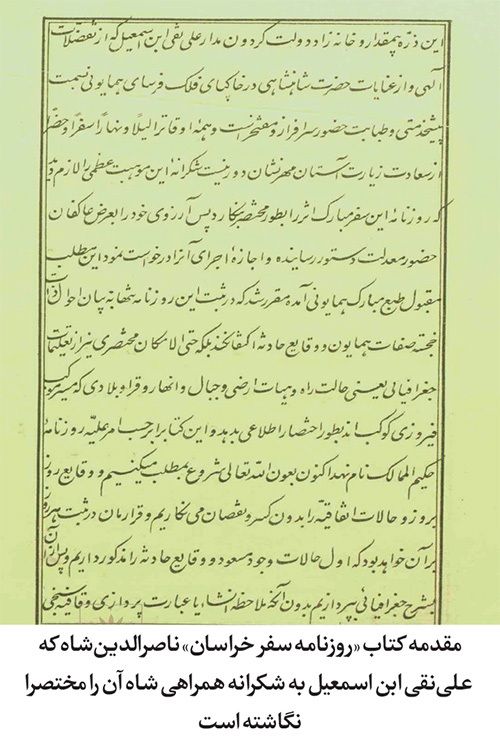 این ذرّه بیمقدار و خانه زاد دولت گردون مدار علی نقی ابن اسمعیل که از تفضلات
آلهی و از عنایات حضرت شاهنشاهی در خاکپای فلک فرسای همایونی بسمت
پیشخدمتی و طبابت حضور سرافراز و مفتخر است و همهٔ اوقاتر الیلاً و نهاراً سفراً و حضراً
از سعادت زیارت آستان مهرنشان دور نیست شکرانهٔ این موهبت عظمی را لازم دید
که روزنامهٔ این سفر مبارک اثر را بطور مختصر بنکارد پس آرزوی خود را بعرض عاکفان
حضور معدلت دستور رسانیده و اجازهٔ اجرای آنرا درخواست نمود این مطلب
مقبول طبع مبارک همایونی آمده مقرر شد که در ثبت این روزنامه تنها به بیان احوال
خجسته صفات همایون و وقایع حادثه اکتفا نکند بلکه حتی الامکان مختصری نیز از تعلیقات
جغرافیائی یعنی حالت راه و هیات ارضی و جبال و انهار و قرا و بلادی که مسیر موکب
فیروزی کوکب اند بطور اختصار اطلاعی بدهد و این کتاب را بر حسب امر علیّه روزنامهٔ
حکیم الممالک نام نهد اکنون بعون الله تعالی شروع بمطلب میکنیم و وقایع روز
بروز و حالات اتفاقیه را بدون کسر و نقصان می نکاریم و قرارمان در ثبت هر روزه
بر آن خواهد بود که اول حالات وجود مسعود و وقایع حادثه را مذکور داریم و پس از آن
بشرح جغرافیائی بپردازیم بدون آنکه ملاحظه انشاء یا عبارت پردازی و قافیه سنجی
مقدمه کتاب «روزنامه سفر خراسان» ناصرالدین‌شاه که
علی‌نقی ابن اسمعیل به شکرانه همراهی شاه آن را مختصرا
نگاشته است